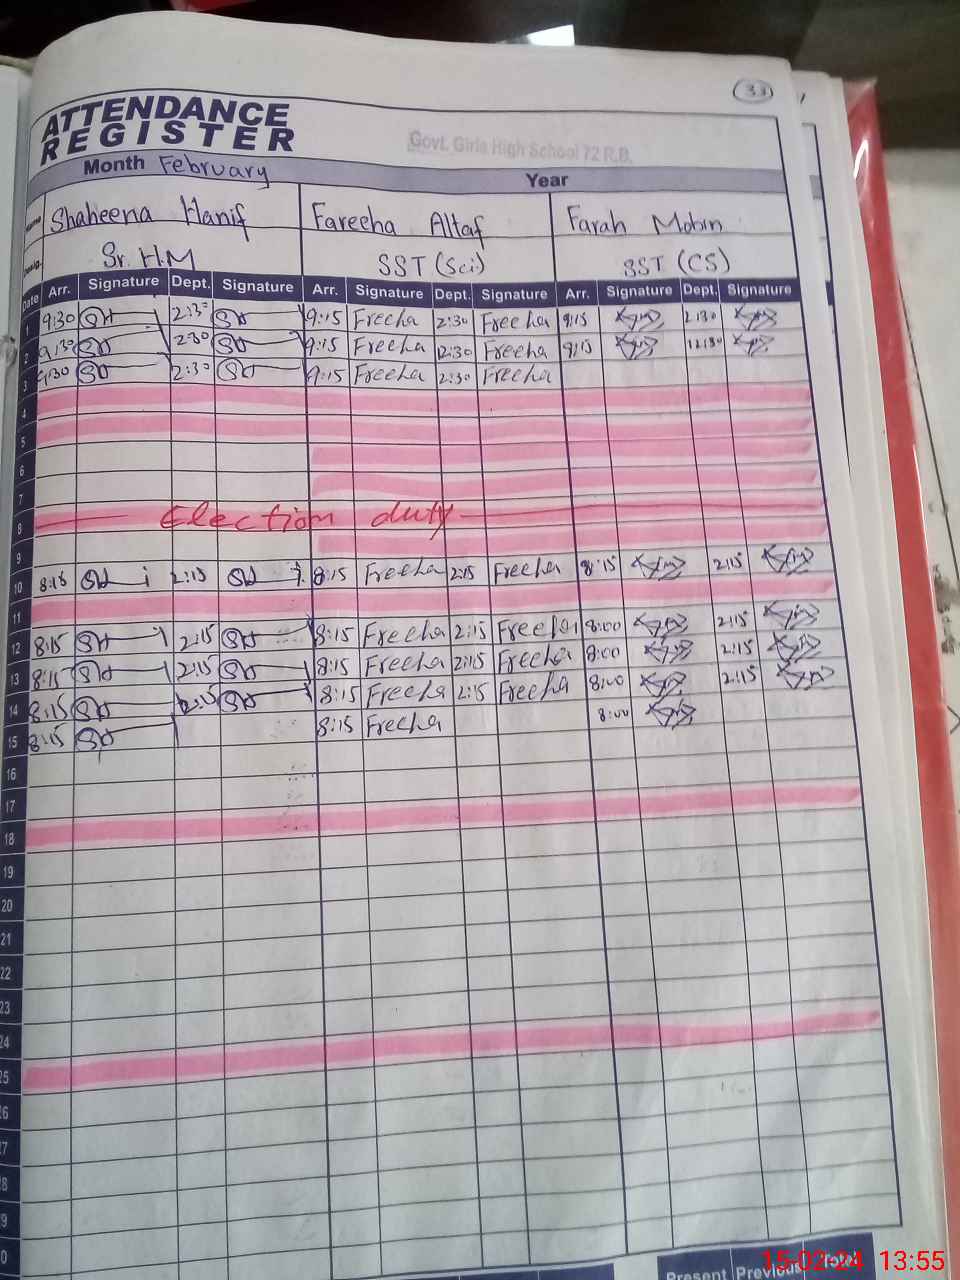 33
ATTENDANCE
REGISTER
Govt. Girls High School 72 R.B.
Month February Year
Shaheena Hanif Fareeha Altaf Farah Mobin
Desig. Sr. H.M SST (Sci) SST (CS)
Date Arr. Signature Dept. Signature Arr. Signature Dept. Signature Arr. Signature Dept. Signature
1 9:30 2:30 9:15 Freeha 2:30 Freeha 9:15 2:30
2 9:30 2:30 9:15 Freeha 12:30 Freeha 8:15 12:30
3 9:30 2:30 9:15 Freeha 2:30 Freeha
4
5
6
7
8 Election duty
9
10 8:15 2:15 8:15 Freeha 2:15 Freeha 8:15 2:15
11
12 8:15 2:15 8:15 Freeha 2:15 Freeha 8:00 2:15
13 8:15 2:15 8:15 Freeha 2:15 Freeha 8:00 2:15
14 8:15 2:15 8:15 Freeha 2:15 Freeha 8:00 2:15
15 8:15 8:15 Freeha 8:00
16
17
18
19
20
21
22
23
24
25
6
7
8
9
0
Present Previous Total
15-02-24 13:55